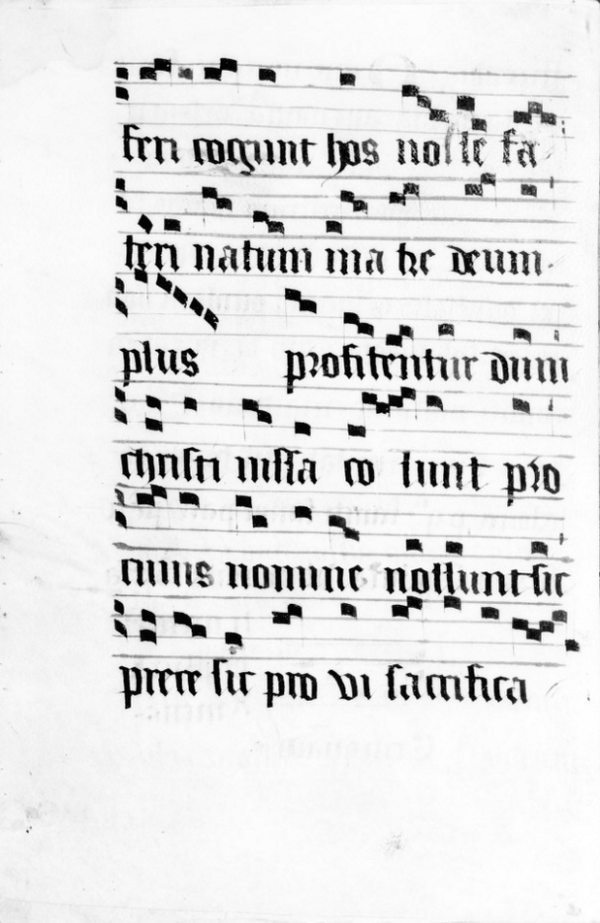 fren cogunt hos nolle fa
teri natum ma tre deum.
plus profitentur dum
christi iussa co lunt pro
cuius nomine nollunt sic
prece sic pro vi sacrifica